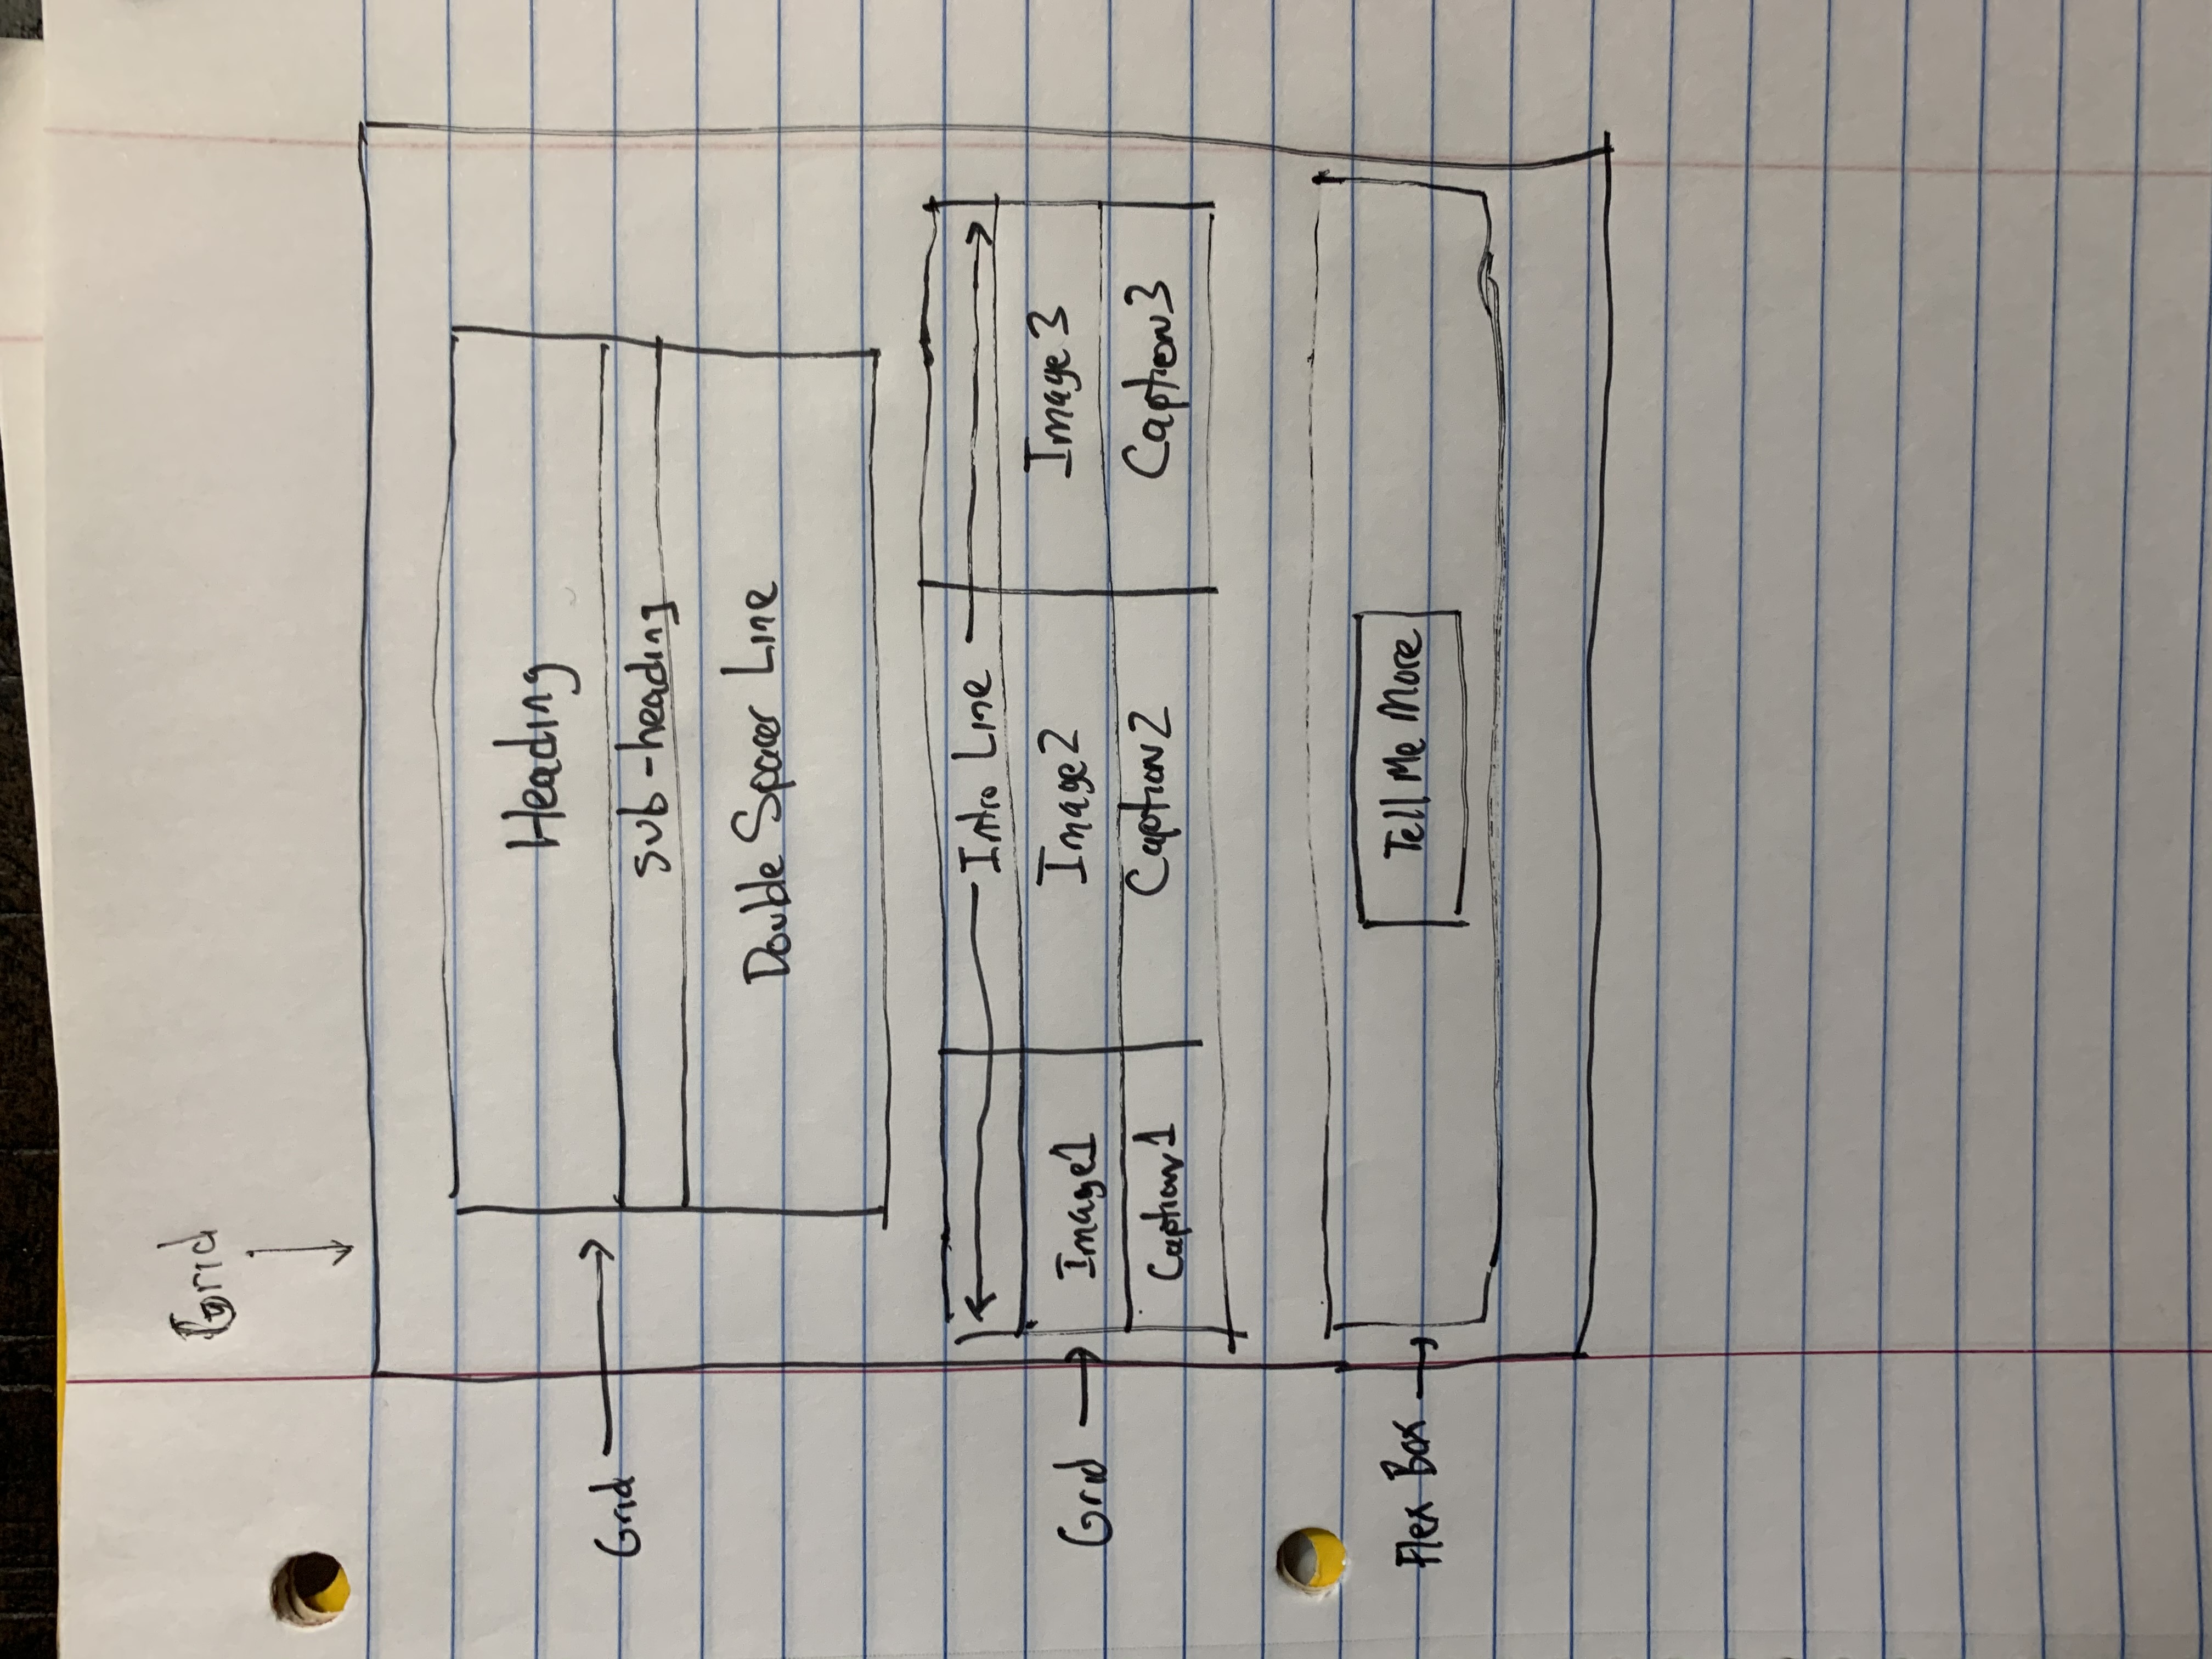 Grid
Heading
Grid
sub-heading
Double Spacer Line
Intro Line
Grid
Image1
Image2
Image3
Caption1
Caption2
Caption3
Flex Box
Tell Me More